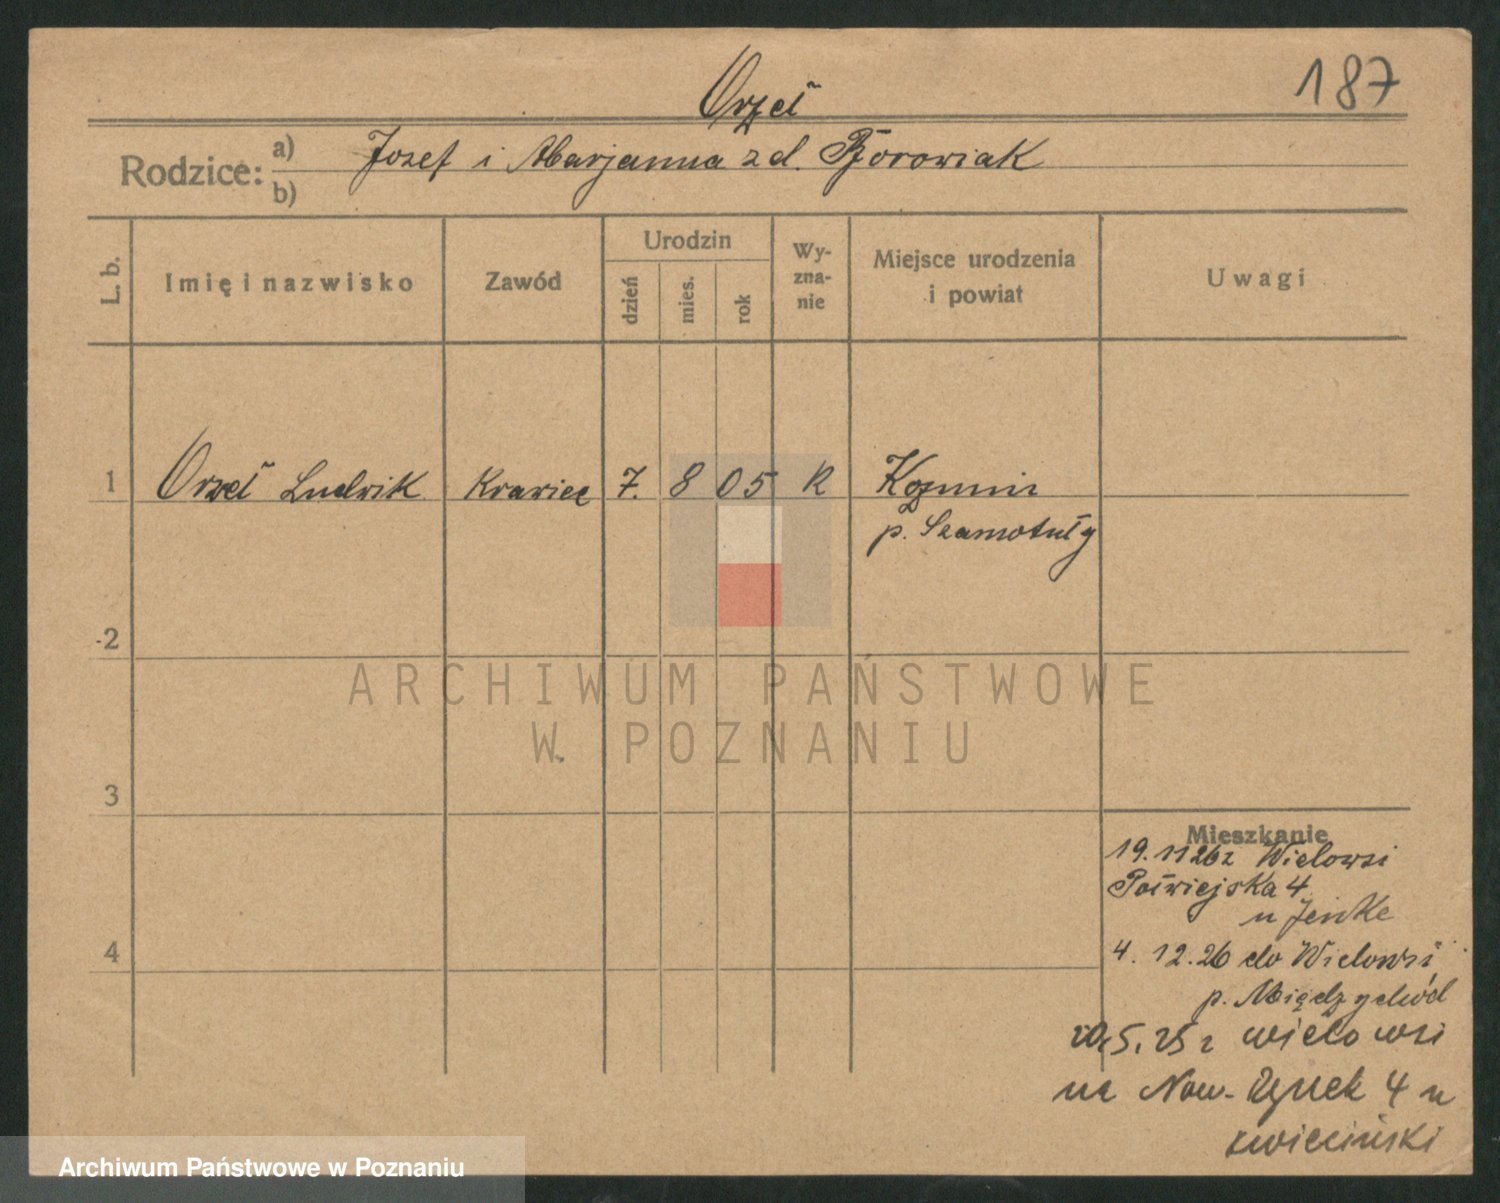 187
Orzeł
Rodzice: a) Jozef i Marjanna z d. Borowiak
b)
L. b.
Imię i nazwisko
Zawód
Urodzin
dzień
mies.
rok
Wy-
zna-
nie
Miejsce urodzenia
i powiat
Uwagi
1 Orzeł Ludwik Krawiec 7. 8 05 R Koźmin
p. Szamotuły
2
3
4
Mieszkanie
19.11 26 z Wielowsi
Półwiejska 4
u Jeske
4. 12. 26 do Wielowsi
p. Międzychód
20.5. 25 z wielowsi
na Now. Rynek 4 u
Kwieciński
ARCHIWUM PAŃSTWOWE
W POZNANIU
Archiwum Państwowe w Poznaniu